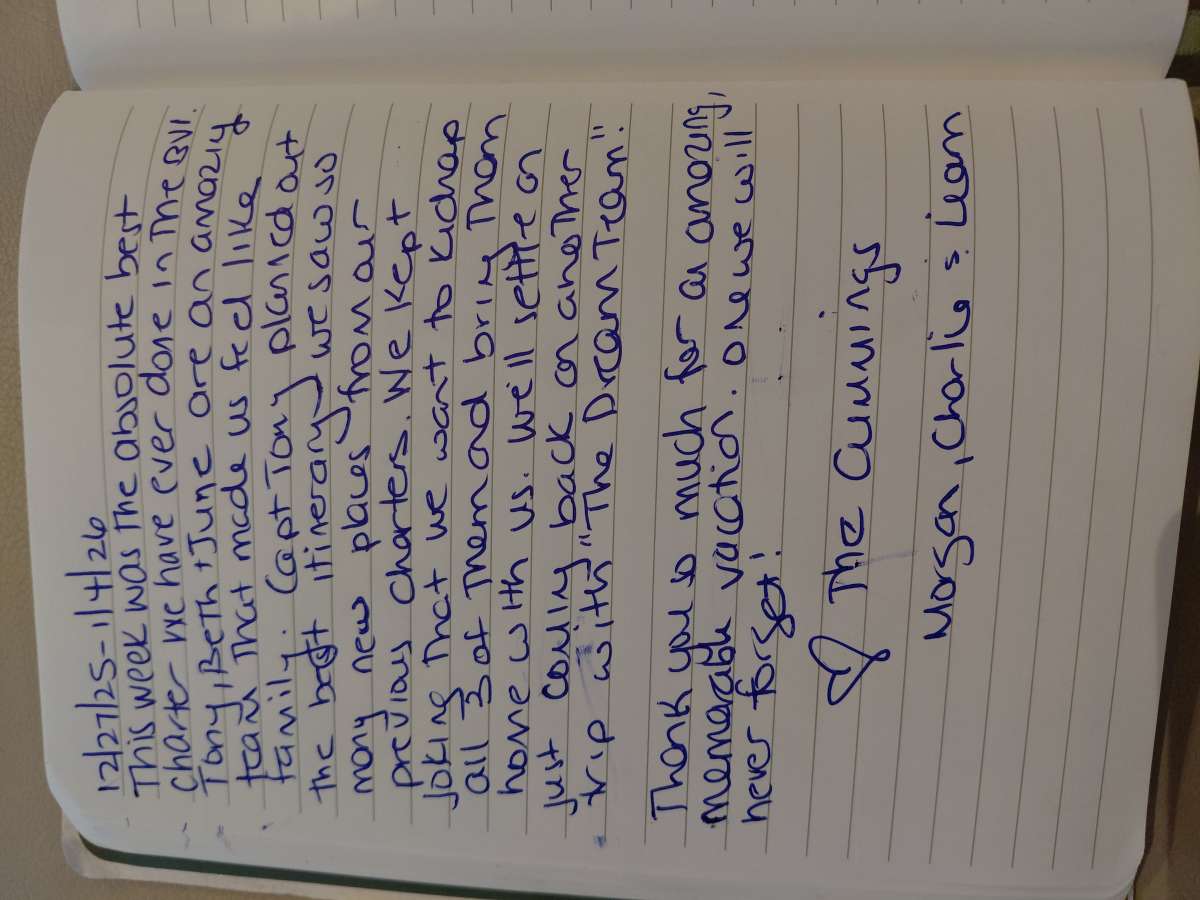 12/27/25-1/4/26
This week was the absolute best
charter we have ever done in the BVI.
Tony, Beth + June are an amazing
team that made us feel like
family. Capt Tony planned out
the best itinerary we saw so
many new places from our
previous charters. We kept
joking that we want to kidnap
all 3 of them and bring them
home with us. We'll settle on
just coming back on another
trip with "The Dream Team".
Thank you so much for an amazing,
memorable vacation. One we will
never forget!
♡ The Cummings
Morgan, Charlie & Liam